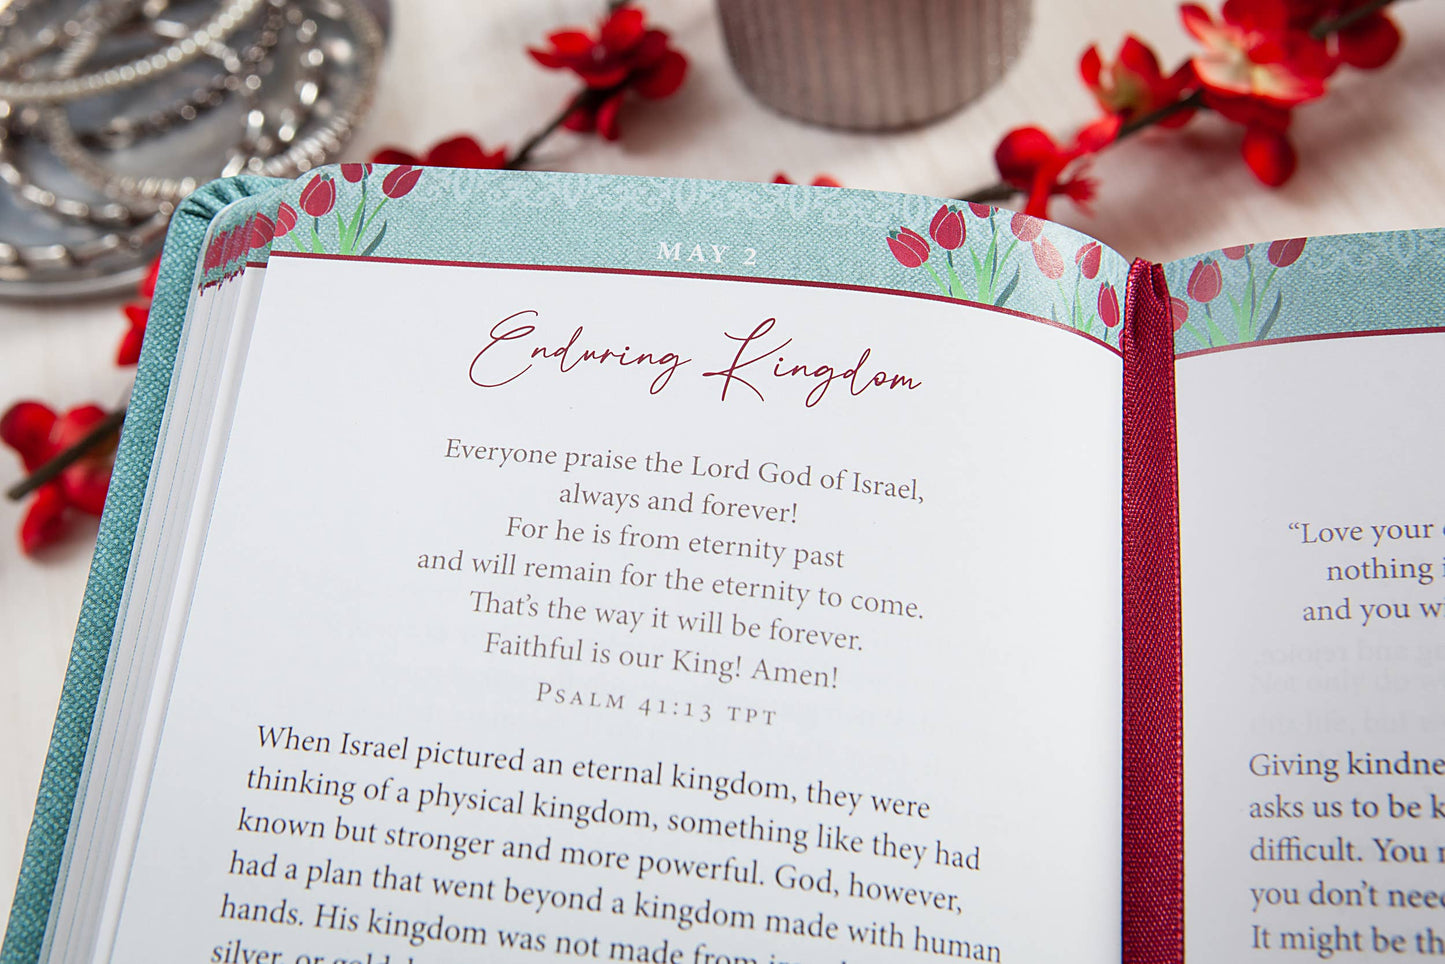 MAY 2
Enduring Kingdom
Everyone praise the Lord God of Israel,
always and forever!
For he is from eternity past
and will remain for the eternity to come.
That's the way it will be forever.
Faithful is our King! Amen!
PSALM 41:13 TPT
When Israel pictured an eternal kingdom, they were
thinking of a physical kingdom, something like they had
known but stronger and more powerful. God, however,
had a plan that went beyond a kingdom made with human
hands. His kingdom was not made from
silver, or gold
“Love your
nothing
and you
Giving
asks us to be
difficult. You
you don't
It might be